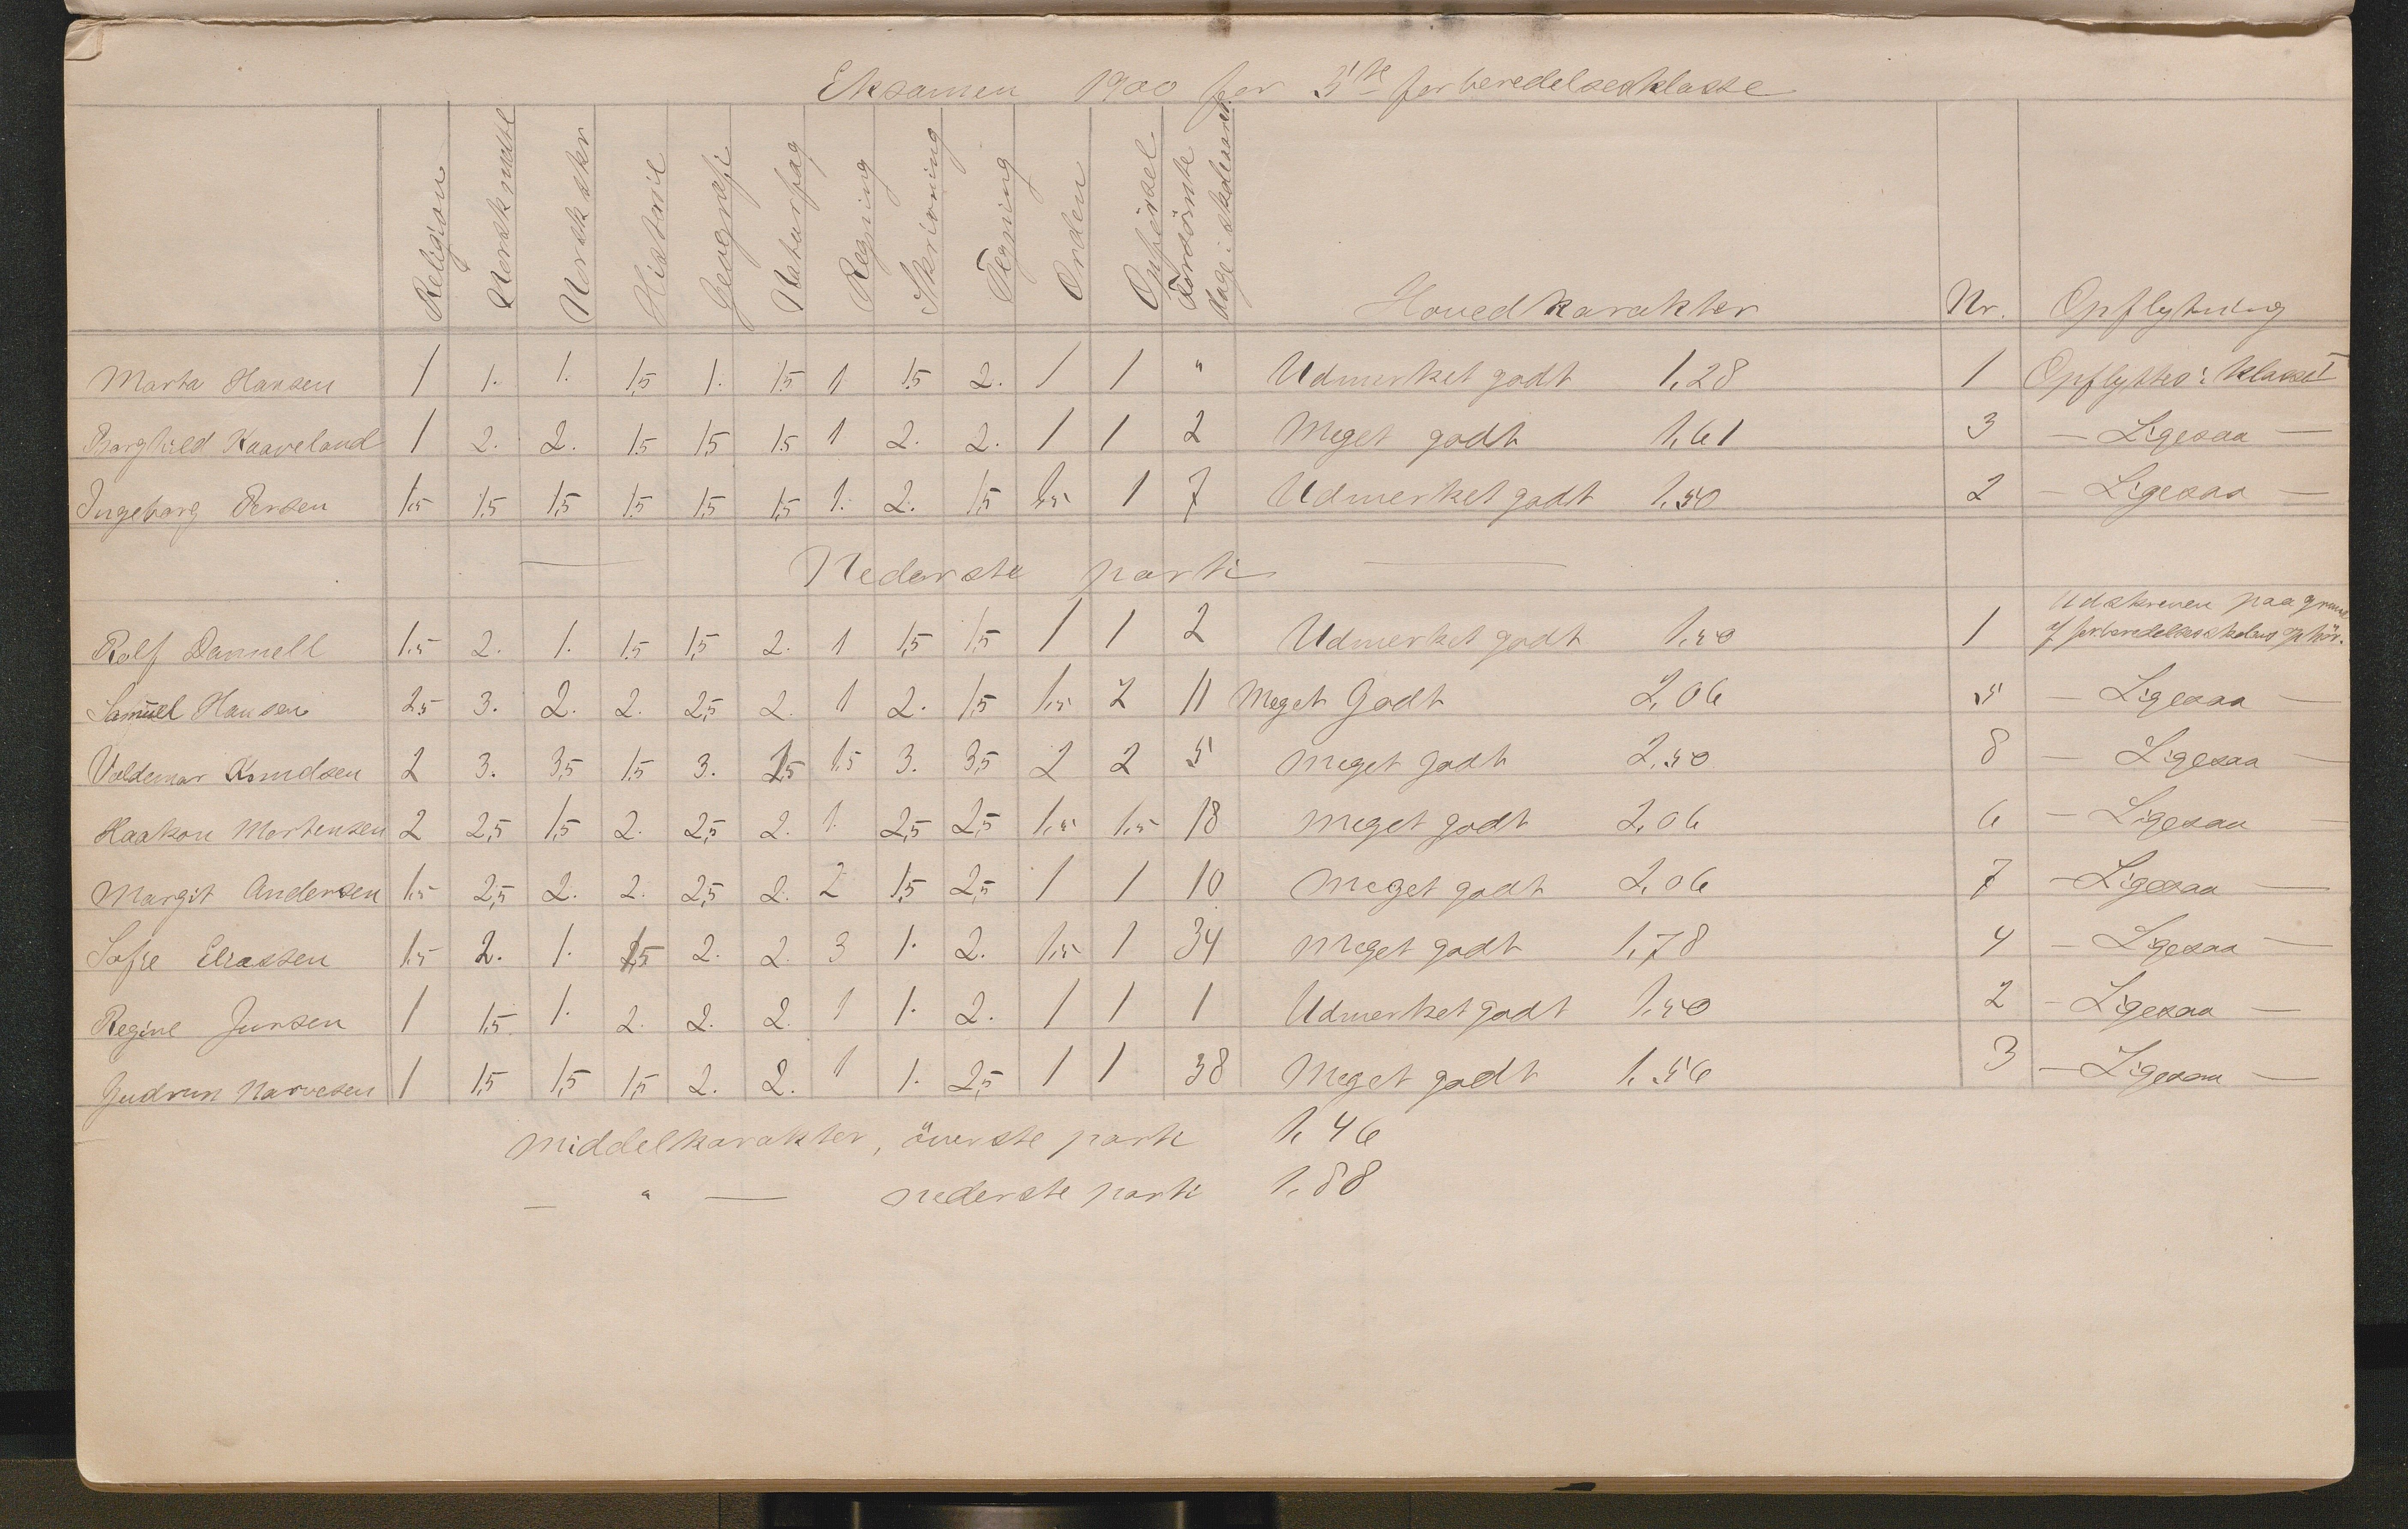 Eksamen 1900 for 3die forberedelsesklasse
Religion Norsk mdtl Norsk skr Historie Geografi Naturfag Regning Skrivning Tegning Orden Opførsel Forsömte dage i skoleaaret Hovedkarakter Nr. Opflytning
Marta Hansen 1 1. 1. 1,5 1. 1,5 1 1,5 2. 1 1 " Udmerket godt 1,28 1 Opflyttes i klasse I
Borghild Kaaveland 1 2. 2. 1,5 1,5 1,5 1 2. 2. 1 1 2 Meget godt 1,61 3 — Ligesaa —
Ingeborg Persen 1,5 1,5 1,5 1,5 1,5 1,5 1. 2. 1,5 1,5 1 7 Udmerket godt 1,50 2 — Ligesaa —
— Nederste parti —
Rolf Dannell 1,5 2. 1. 1,5 1,5 2. 1 1,5 1,5 1 1 2 Udmerket godt 1,50 1 Udskreven paa grund
af forberedelsesskolens ophör.
Samuel Hansen 2,5 3. 2. 2. 2,5 2. 1 2. 1,5 1,5 2 11 Meget Godt 2,06 5 — Ligesaa —
Valdemar Knudsen 2 3. 3,5 1,5 3. 1,5 1,5 3. 3,5 2 2 5 Meget godt 2,50 8 — Ligesaa —
Haakon Mortensen 2 2,5 1,5 2. 2,5 2. 1. 2,5 2,5 1,5 1,5 18 Meget godt 2,06 6 — Ligesaa —
Margit Andersen 1,5 2,5 2. 2. 2,5 2. 2 1,5 2,5 1 1 10 Meget godt 2,06 7 — Ligesaa —
Sofie Eliassen 1,5 2. 1. 1,5 2. 2. 3 1. 2. 1,5 1 34 Meget godt 1,78 4 — Ligesaa —
Regine Jensen 1 1,5 1. 2. 2. 2. 1 1. 2. 1 1 1 Udmerket godt 1,50 2 — Ligesaa —
Gudrun Narvesen 1 1,5 1,5 1,5 2. 2. 1 1. 2,5 1 1 38 Meget godt 1,56 3 — Ligesaa —
Middelkarakter, överste parti 1,46
— " — nederste parti 1,88